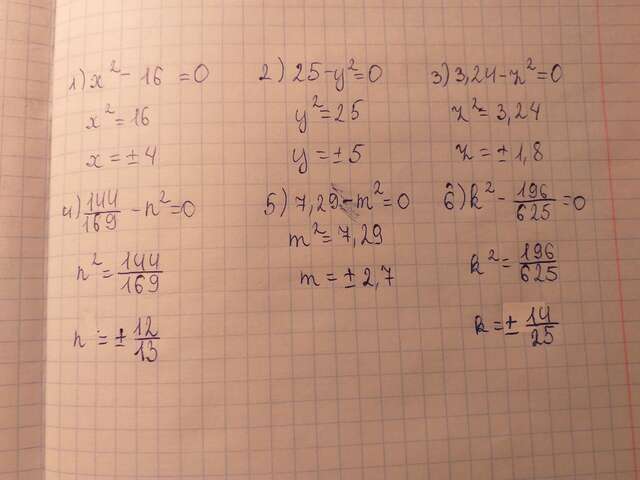 1) x² - 16 = 0
x² = 16
x = ± 4
2) 25 - y² = 0
y² = 25
y = ± 5
3) 3,24 - z² = 0
z² = 3,24
z = ± 1,8
4) 144/169 - n² = 0
n² = 144/169
n = ± 12/13
5) 7,29 - m² = 0
m² = 7,29
m = ± 2,7
6) k² - 196/625 = 0
k² = 196/625
k = ± 14/25